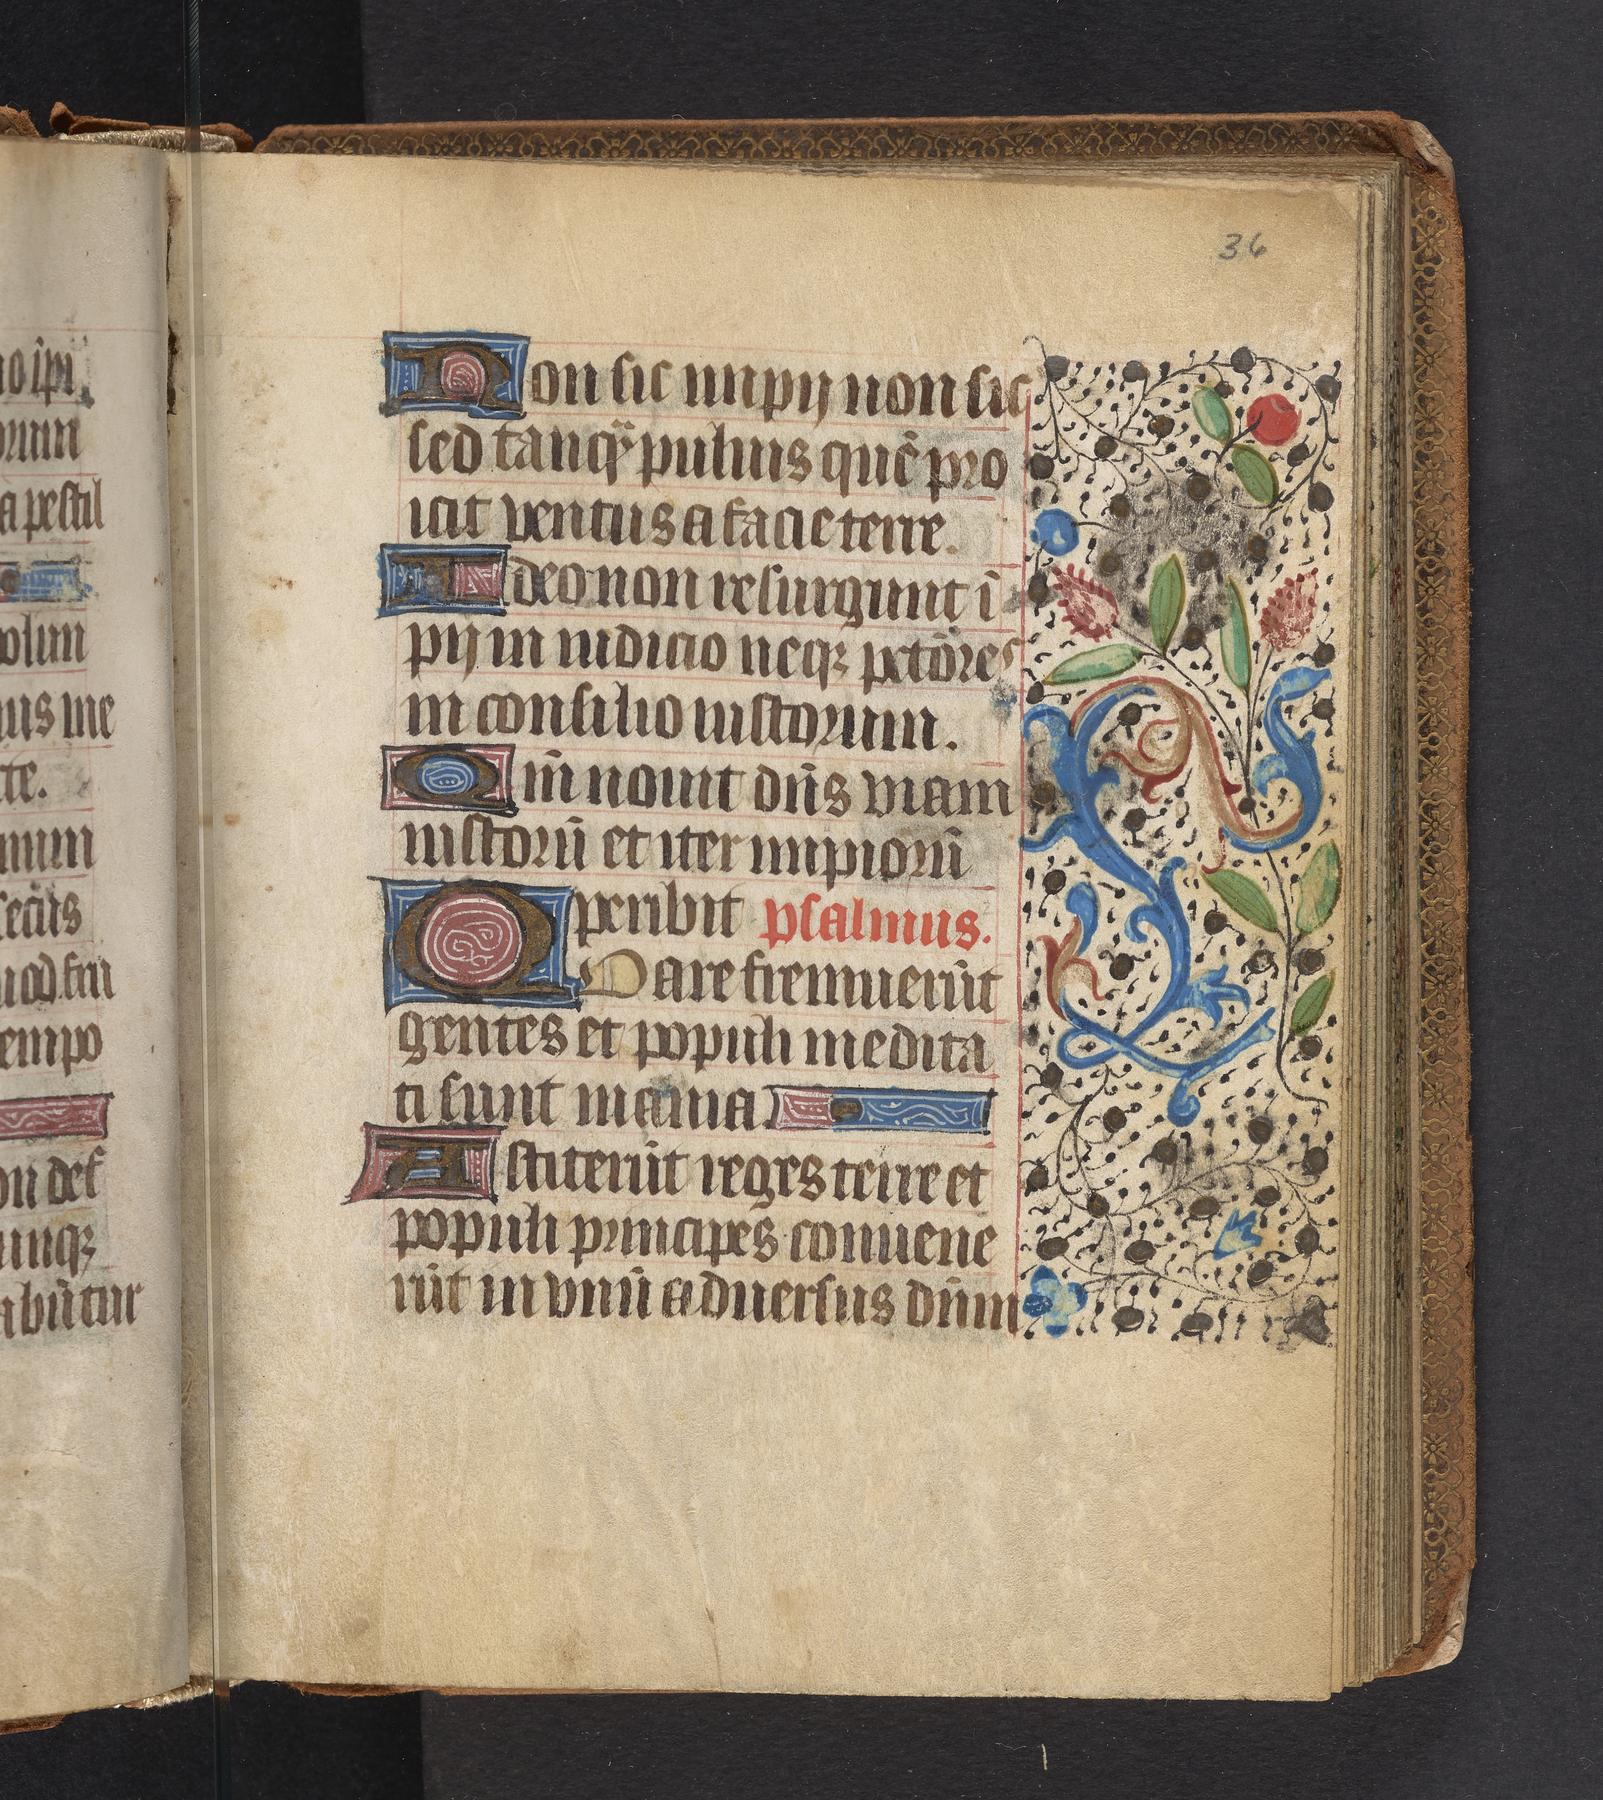 36
no ip̄i
orum
a pestil
volun
ius me
te.
mum
secus
uod fru
tempo
on def
umqꝫ
abūtur
Non sic impij non sic
sed tanqᷓ puluis quē pro
icit ventus a facie terre.
Ideo non resurgunt ī
pij in iudicio neqꝫ pctōres
in consilio iustorum.
Qm̄ nouit dn̄s viam
iustorū et iter impiorū
peribit psalmus.
Quare fremuerūt
gentes et populi medita
ti sunt inania
Astiterūt reges terre et
populi principes conuene
rūt in vnū aduersus dn̄m